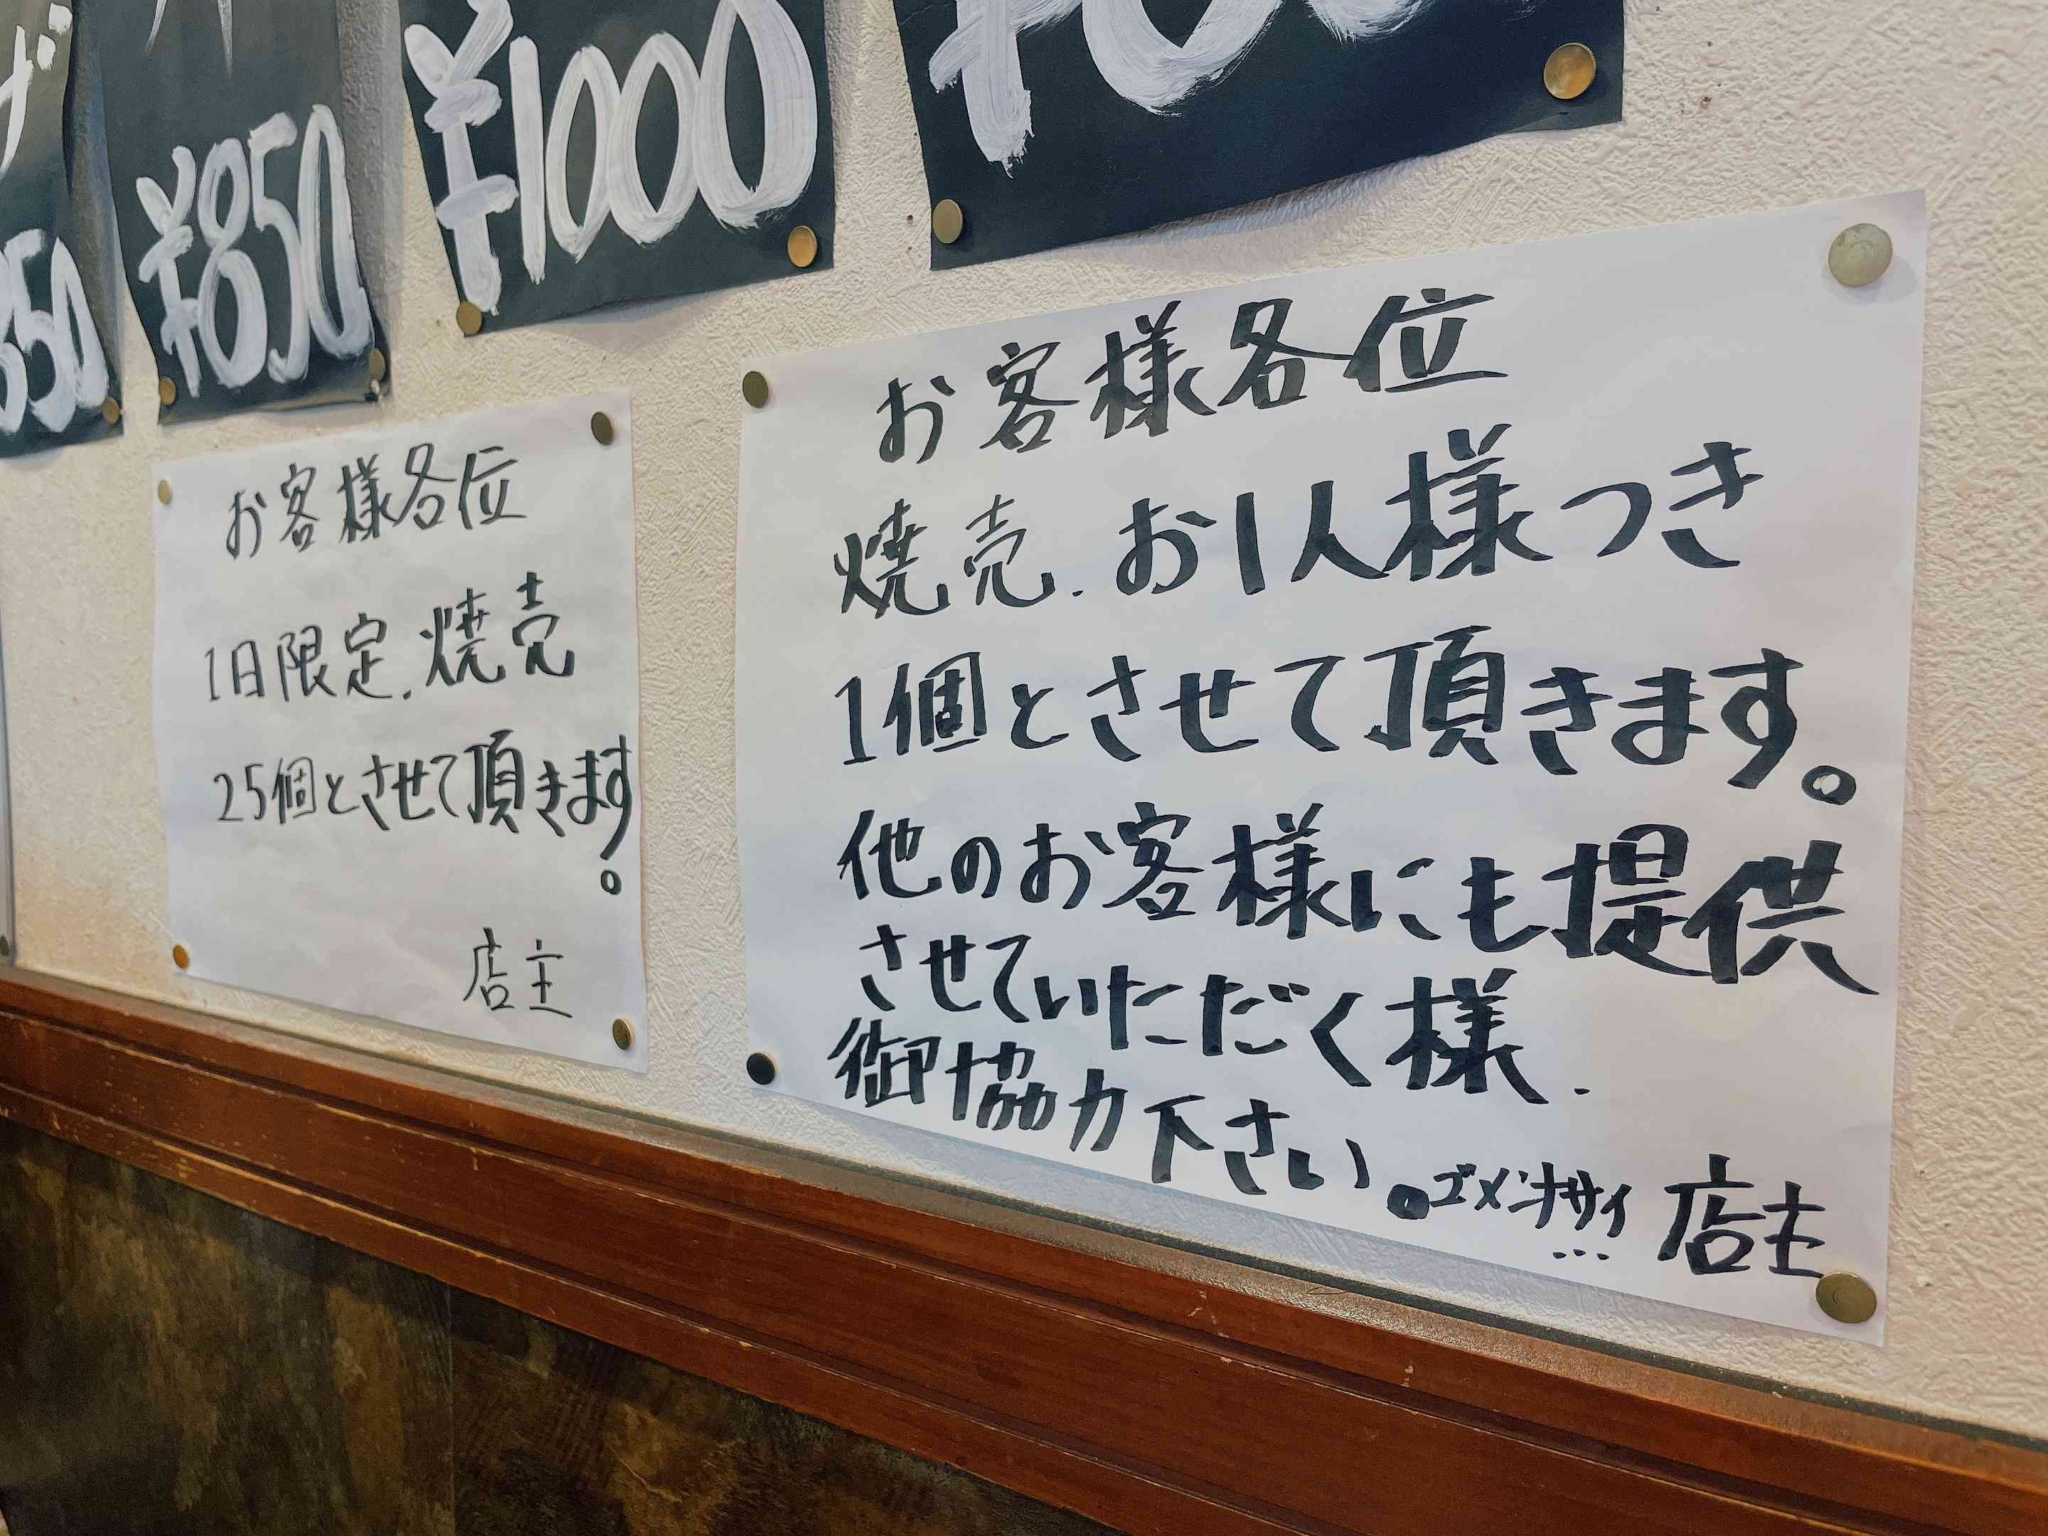 ¥850
¥1000
お客様各位
1日限定.焼売
25個とさせて頂きます。
店主
お客様各位
焼売.お1人様つき
1個とさせて頂きます。
他のお客様にも提供
させていただく様.
御協力下さい。ゴメンナサイ…
店主